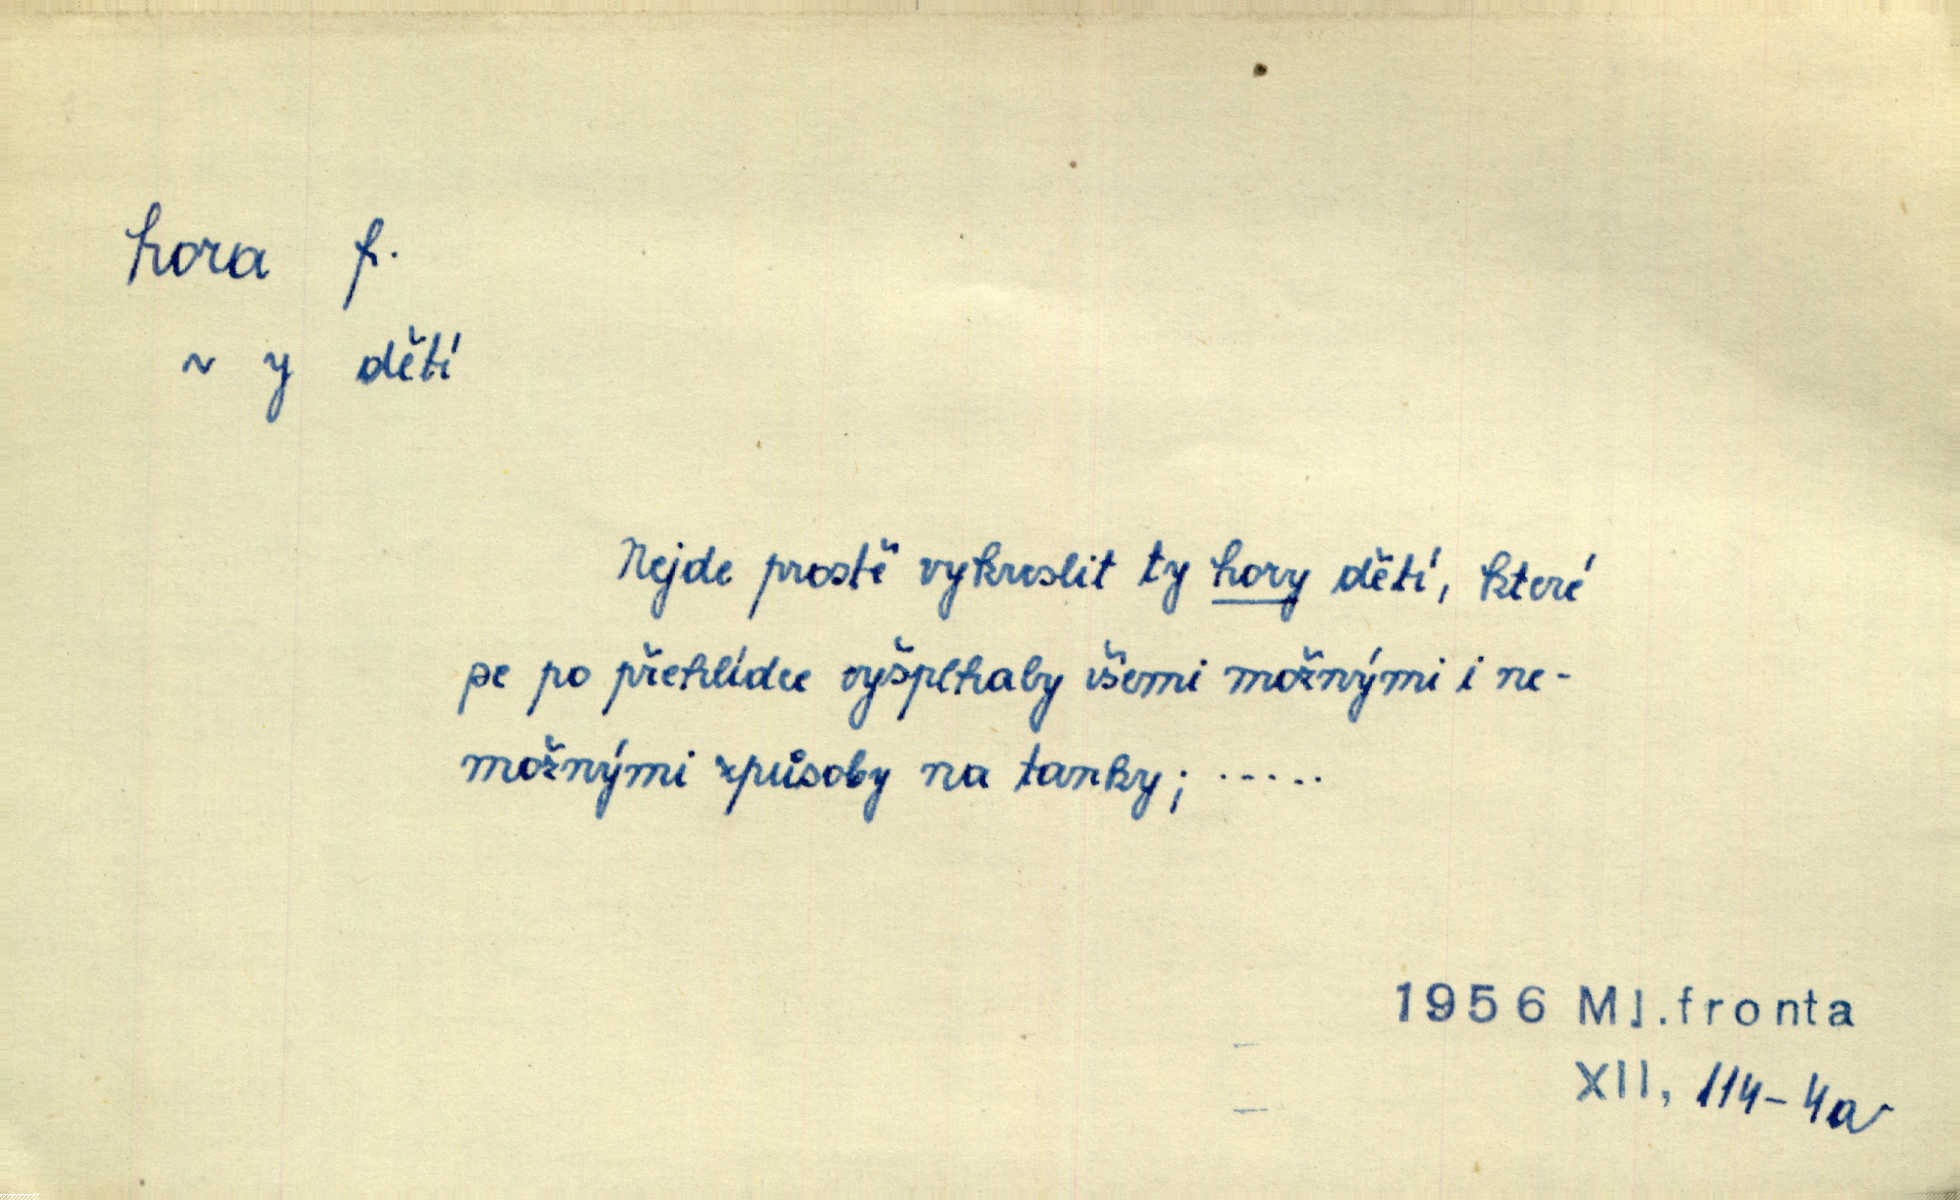 hora f.
~ y dětí
Nejde prostě vykreslit ty hory dětí, které
se po přehlídce vyšplhaly všemi možnými i ne-
možnými způsoby na tanky; .....
1956 Ml.fronta
XII, 114-4a